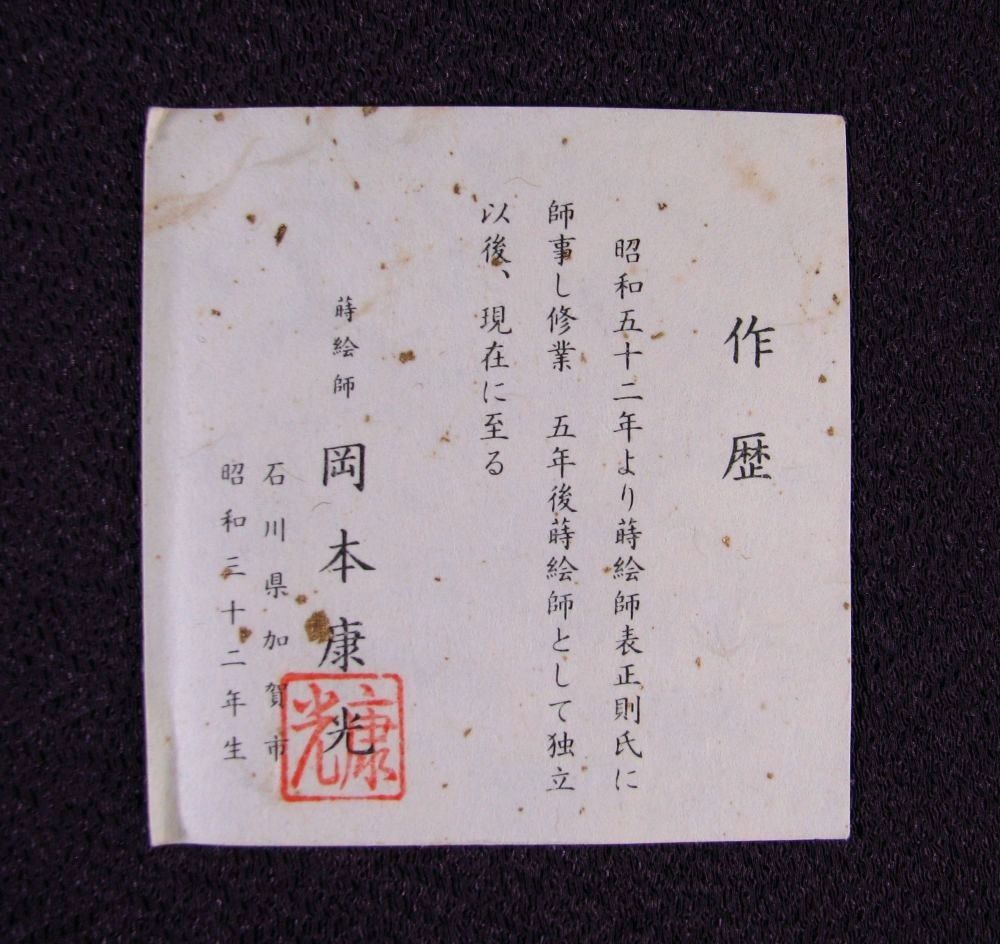 作歴
昭和五十二年より蒔絵師表正則氏に
師事し修業　五年後蒔絵師として独立
以後、現在に至る
蒔絵師　岡本康光
石川県加賀市
昭和三十二年生
康光